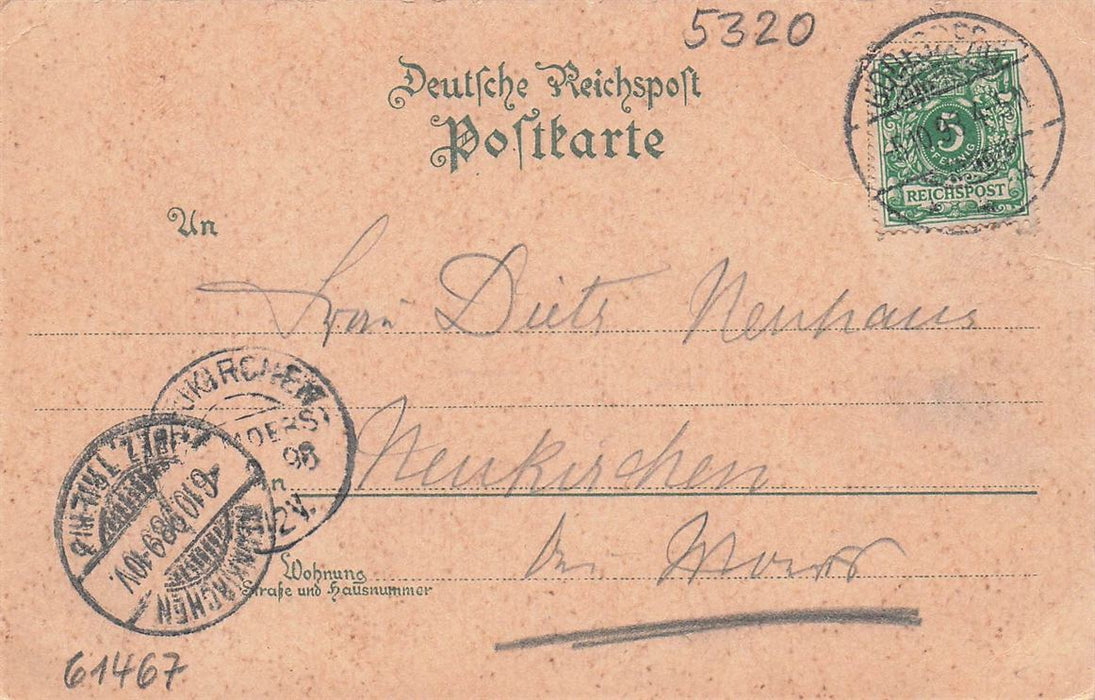 5320
Deutsche Reichspost
Postkarte
5
PFENNIG
REICHSPOST
An
Frau Dietz Neuhaus
Neukirchen
in
bei Moers
NEUKIRCHEN
6 10 98 9-10V.
Wohnung
Straße und Hausnummer
61467